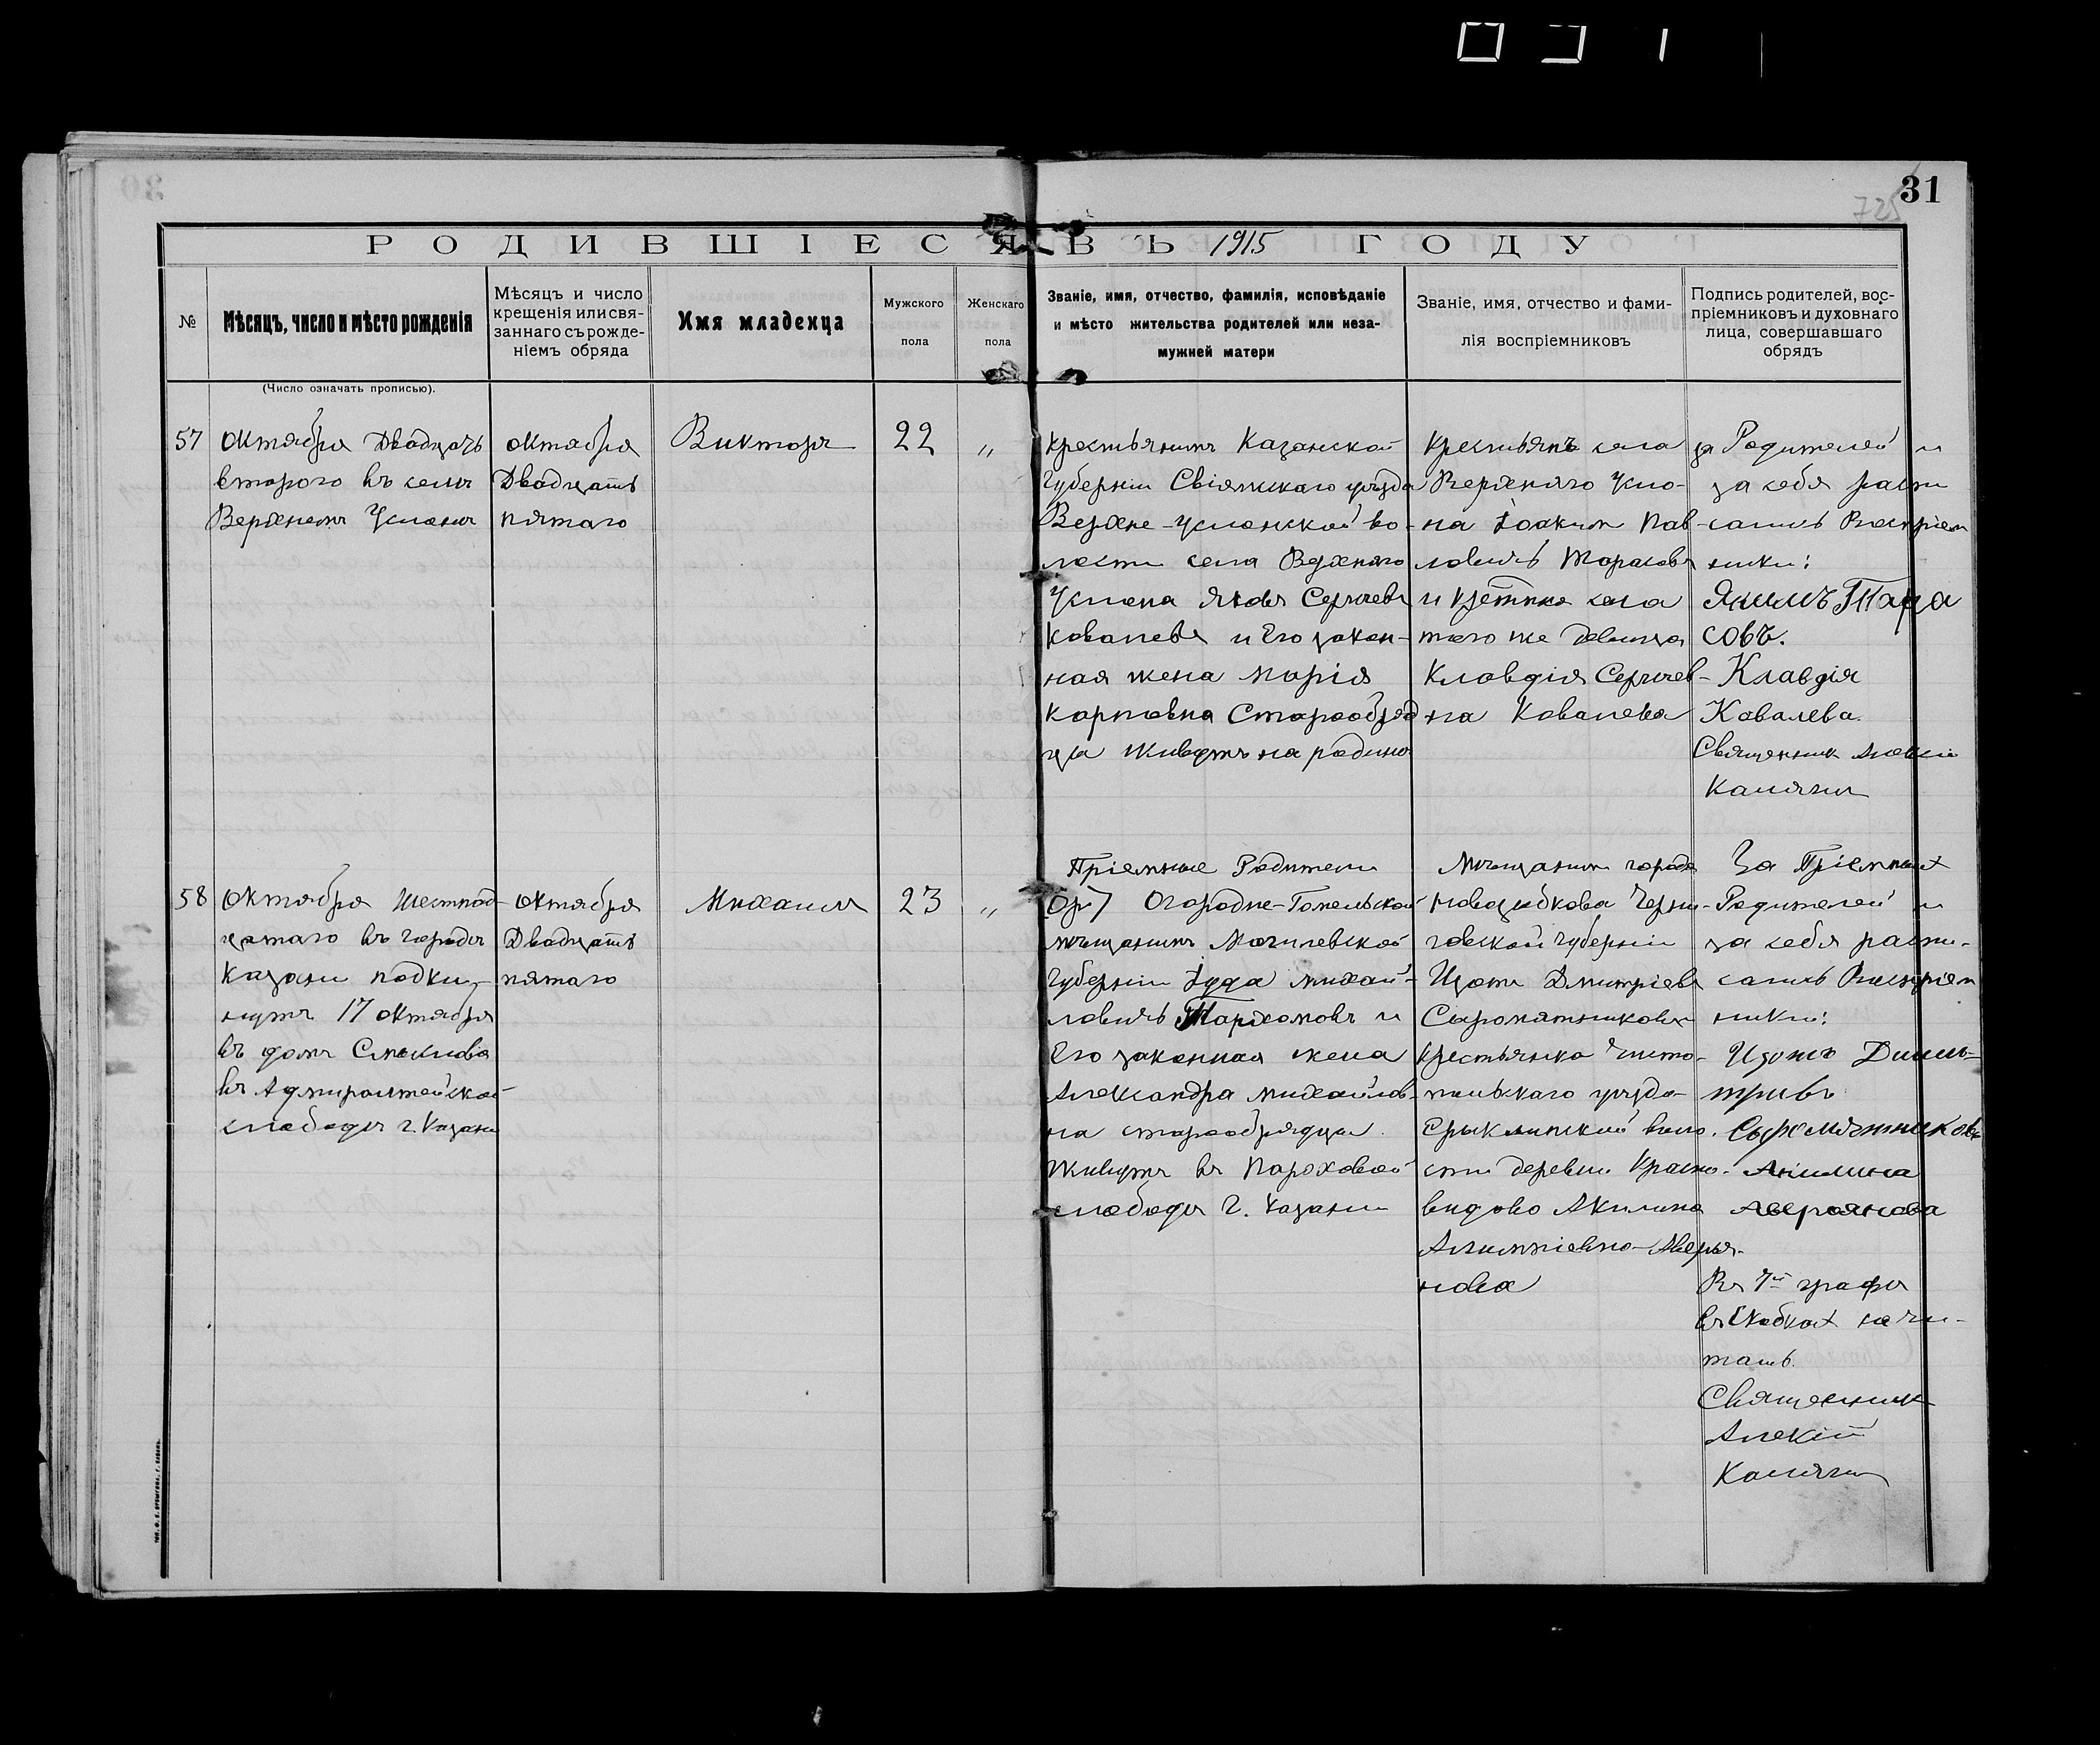 31
725
РОДИВШІЕСЯ ВЪ 1915 ГОДУ
№
Мѣсяцъ, число и мѣсто рожденія
Мѣсяцъ и число
крещенія или свя-
заннаго съ рожде-
ніемъ обряда
Имя младенца
Мужского
пола
Женскаго
пола
Званіе, имя, отчество, фамилія, исповѣданіе
и мѣсто жительства родителей или неза-
мужней матери
Званіе, имя, отчество и фами-
лія воспріемниковъ
Подпись родителей, вос-
пріемниковъ и духовнаго
лица, совершавшаго
обрядъ
(Число означать прописью).
57
Октября Двадцать
второго въ селѣ
Верхнемъ Услонѣ
Октября
Двадцать
пятаго
Викторъ
22
„
Крестьянинъ Казанской
Губерніи Свіяжскаго уѣзда
Верхне-Услонской во-
лости села Верхняго
Услона Яковъ Сергѣевъ
Ковалевъ и Его закон-
ная жена Марія
Карповна Старообряд
цы Живутъ на родинѣ
Крестьянъ села
Верхняго Усло-
на Іоакимъ Пав-
ловичъ Тарасовъ
и села
того же Девица
Клавдія Сергѣев-
на Ковалева
за Родителей и
за себя распи
сались Воспріем
ники:
Якимъ Тара
совъ.
Клавдія
Ковалева.
Священник Алексій
Калягин
58
Октября Шестнад-
цатаго въ Городѣ
Казани подки-
нутъ 17 октября
въ домъ Смыклова
въ Адмиралтейской
слободѣ г. Казани
Октября
Двадцать
пятаго
Михаилъ
23
„
Пріемные Родители
[Ор] Огородне-Гомельской
мѣщанинъ Могилевской
Губерніи Іуда Михай-
ловичъ Пархомовъ и
Его законная жена
Александра Михайлов-
на старообрядцы.
Живутъ въ Пароховой
слободѣ г. Казани
Мѣщанин города
Новозыбкова Черни-
говской губерніи
Изотъ Дмитріевъ
Сыромятниковъ
Крестьянка Чисто-
польскаго уѣзда
Ерыклинской воло-
сти деревни Красно-
видово Акилина
Алимпіевна-Аверья-
нова
За Пріемныхъ
Родителей и
за себя распи-
сались Воспріем
ники:
Изотъ Димит-
тривъ
Сыромятниковъ
Акилина
Авероянова
Въ 7й графѣ
въ Скобкахъ не чи-
тать.
Священник
Алексій
Калягин